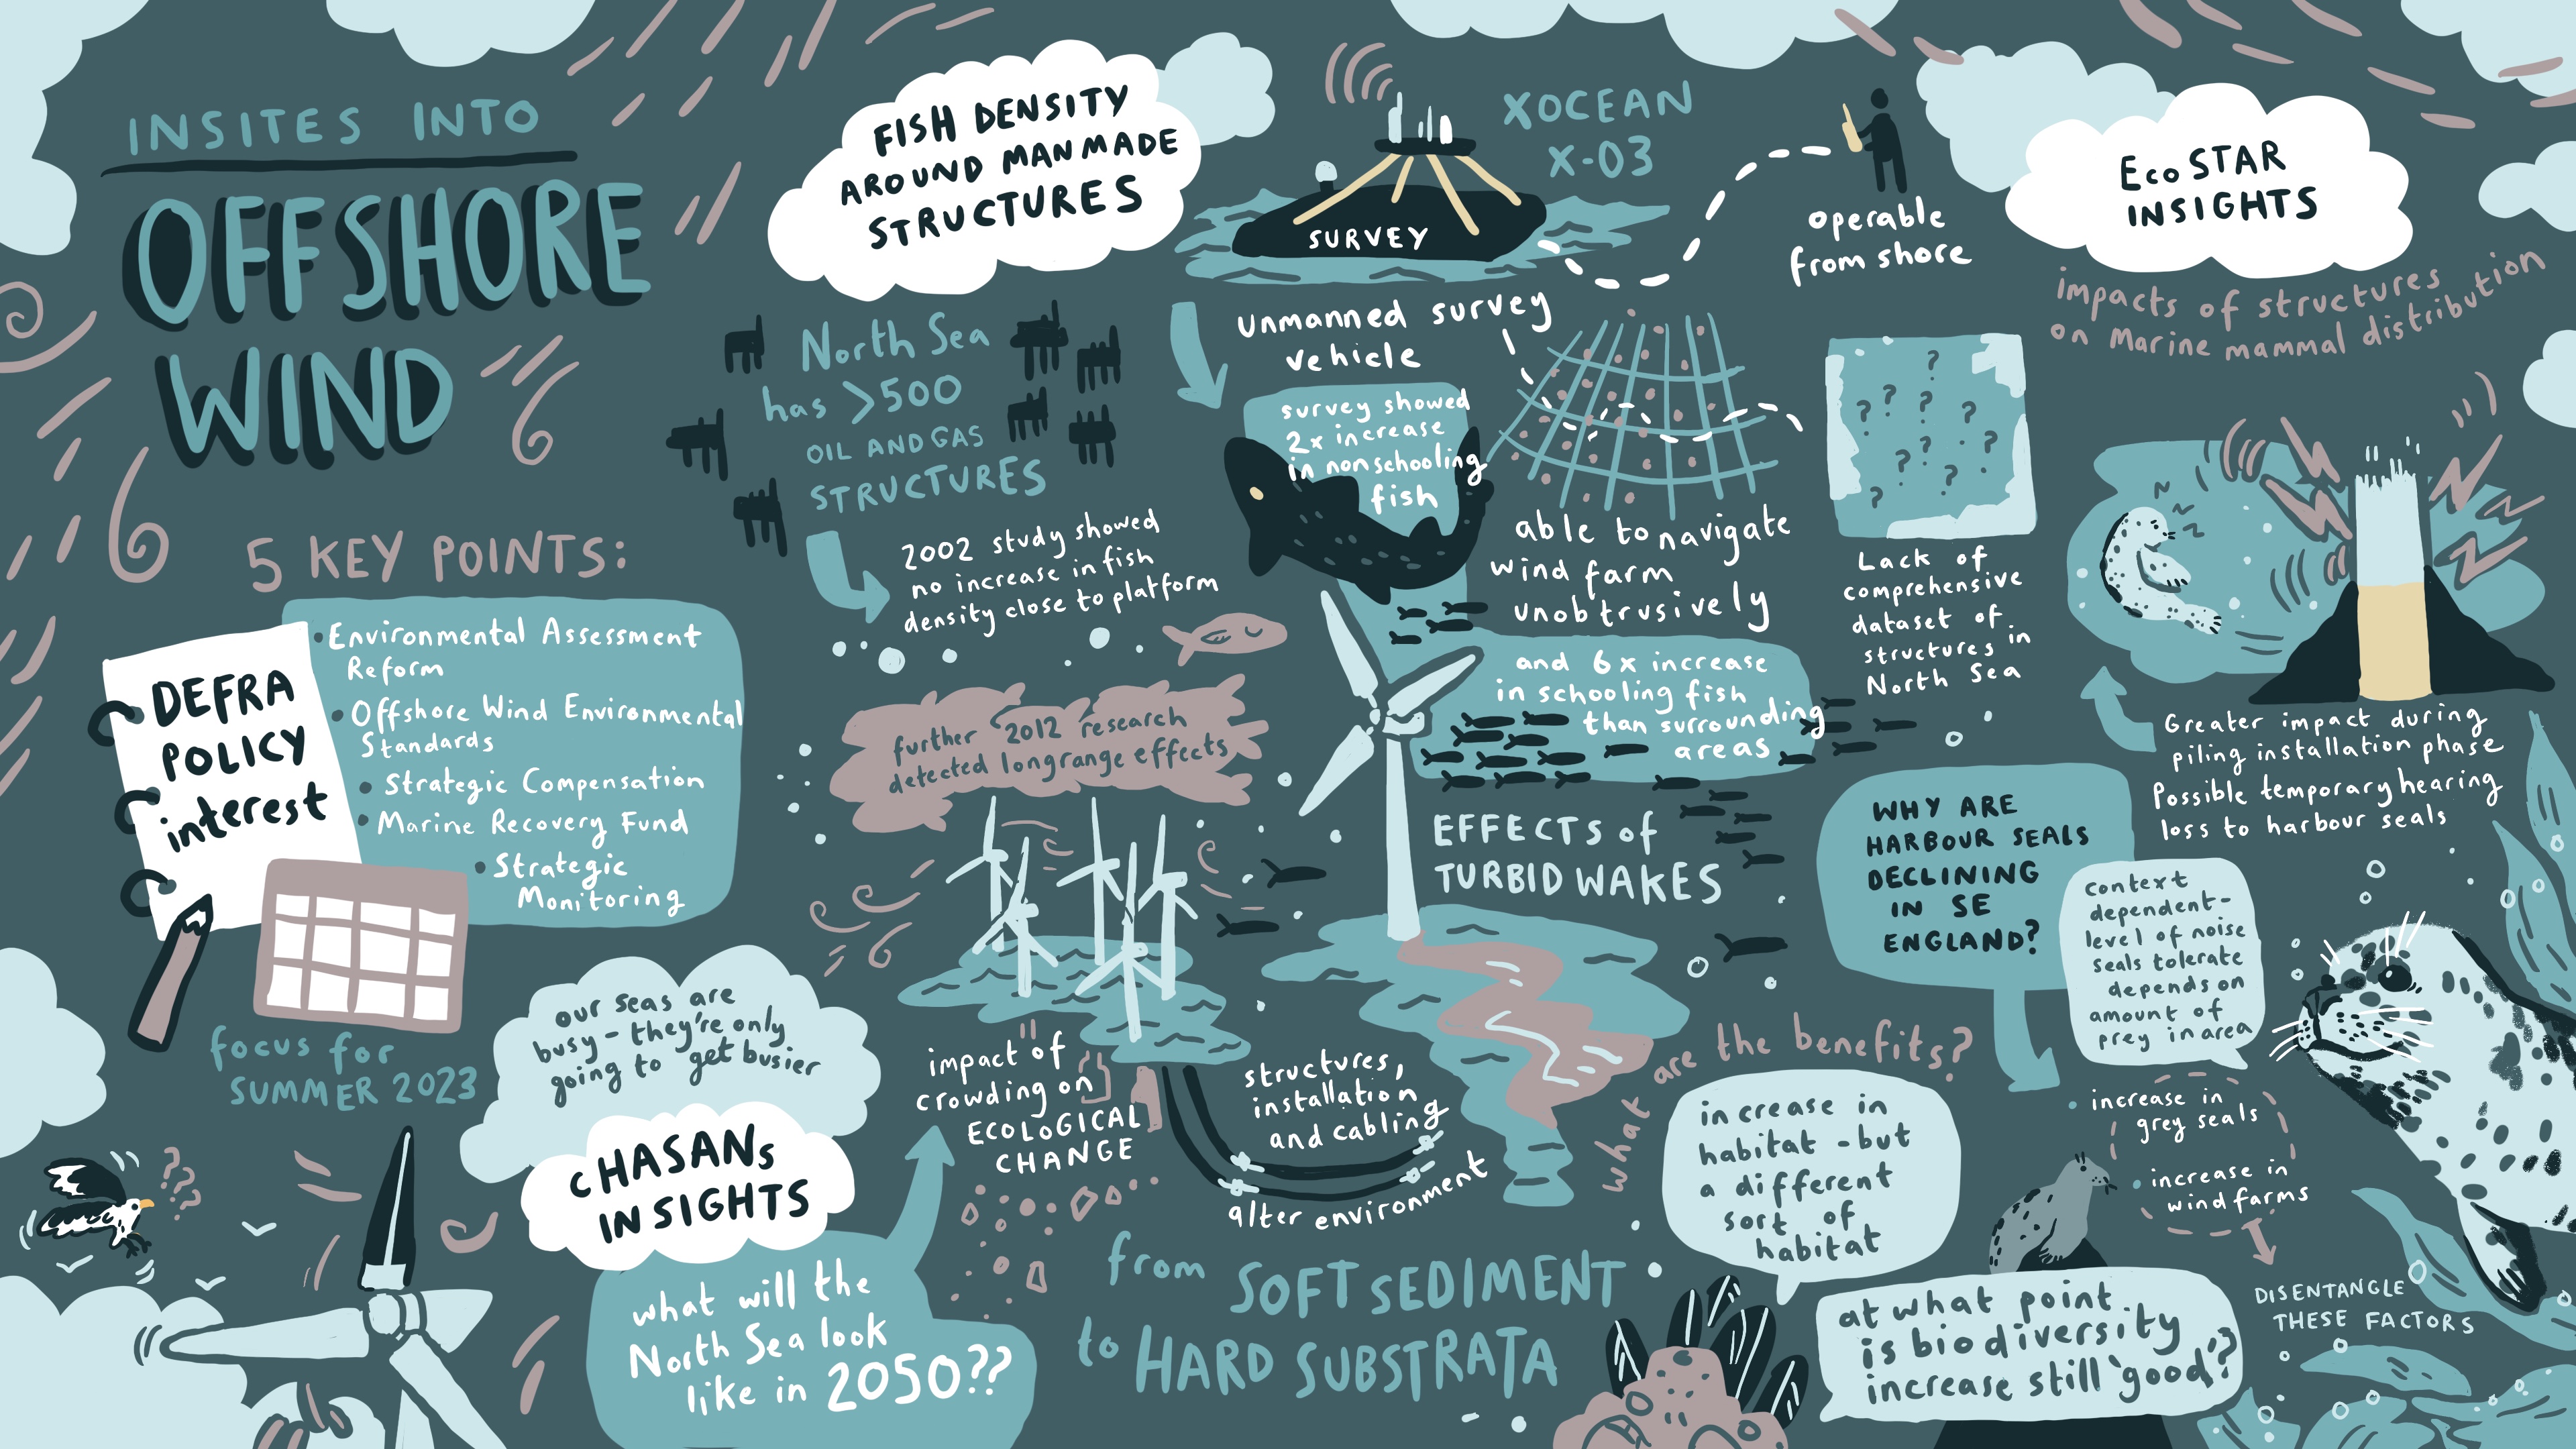 INSITES INTO
OFFSHORE
WIND
5 KEY POINTS:
DEFRA
POLICY
interest
• Environmental Assessment
Reform
• Offshore Wind Environmental
Standards
• Strategic Compensation
• Marine Recovery Fund
• Strategic
Monitoring
focus for
SUMMER 2023
our seas are
busy - they're only
going to get busier
CHASANs
INSIGHTS
what will the
North Sea look
like in 2050??
???
FISH DENSITY
AROUND MANMADE
STRUCTURES
North Sea
has >500
OIL AND GAS
STRUCTURES
2002 study showed
no increase in fish
density close to platform
further 2012 research
detected longrange effects
impact of
crowding on
ECOLOGICAL
CHANGE
structures,
installation
and cabling
alter environment
from SOFT SEDIMENT
to HARD SUBSTRATA
XOCEAN
X-03
SURVEY
operable
from shore
unmanned survey
vehicle
survey showed
2x increase
in nonschooling
fish
able to navigate
wind farm
unobtrusively
and 6x increase
in schooling fish
than surrounding
areas
EFFECTS of
TURBID WAKES
what are the benefits?
increase in
habitat - but
a different
sort of
habitat
at what point
is biodiversity
increase still 'good'?
EcoSTAR
INSIGHTS
impacts of structures
on Marine mammal distribution
?
? ? ?
? ? ?
? ?
?
Lack of
comprehensive
dataset of
structures in
North Sea
Greater impact during
piling installation phase
Possible temporary hearing
loss to harbour seals
WHY ARE
HARBOUR SEALS
DECLINING
IN SE
ENGLAND?
context
dependent -
level of noise
seals tolerate
depends on
amount of
prey in area
• increase in
grey seals
• increase in
wind farms
DISENTANGLE
THESE FACTORS